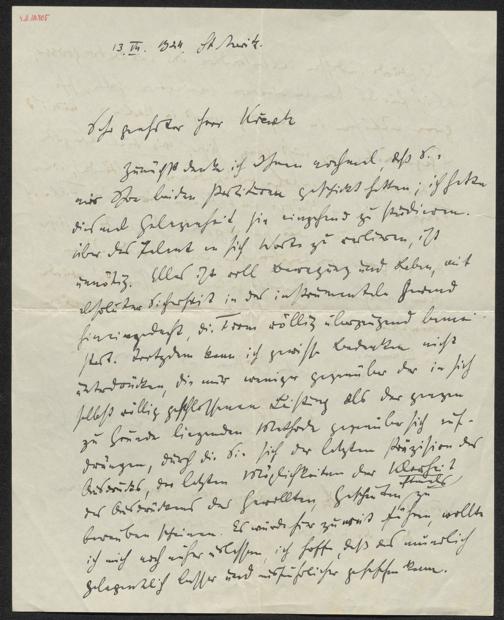 13. 1924. St. Moritz.
Sehr geehrter Herr
Zunächst danke ich Ihnen nochmals, daß Sie
mir Ihre beiden Partituren geschickt hatten; ich hatte
diesmal Gelegenheit, sie eingehend zu studieren.
Über das Talent an sich Worte zu verlieren, ist
unnötig. Alles ist voll Bewegung und Leben, mit
absoluter Sicherheit in das instrumentale Gewand
hineingedacht, die Form völlig überzeugend
Trotzdem kann ich gewisse Bedenken nicht
unterdrücken, die mir weniger gegenüber der in sich
selbst völlig geschlossenen Leistung als der ganzen
zu Grunde liegenden Methode gegenüber sich auf-
drängen, durch die Sie sich der letzten Präzision des
Ausdrucks, der letzten Möglichkeiten der Klarheit
des Ausdrückens des Gewollten, Geschauten, zu
berauben scheinen. Es würde hier zu weit führen, wollte
ich mich noch näher auslassen, ich hoffe, daß das mündlich
gelegentlich besser und ausführlicher geschehen kann.